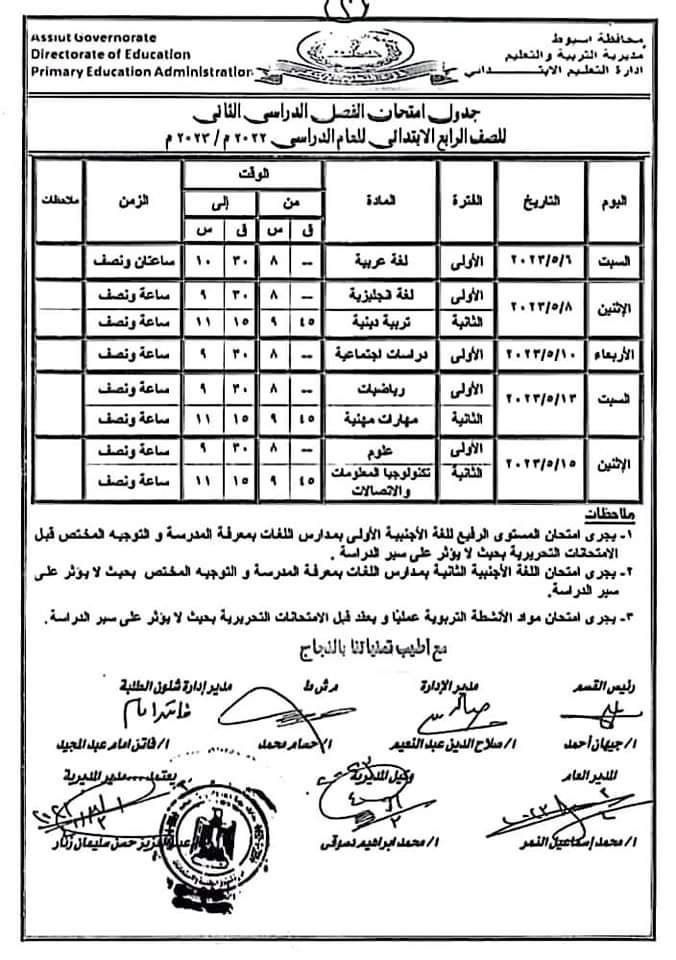 (٢)
محافظة اسيوط
مديرية التربية والتعليم
ادارة التعليم الابتدائى
Assiut Governorate
Directorate of Education
Primary Education Administration
جدول امتحان الفصل الدراسى الثانى
للصف الرابع الابتدائى للعام الدراسى ٢٠٢٢ م / ٢٠٢٣ م
اليوم التاريخ الفترة المادة الوقت الزمن ملاحظات
من إلى
ق س ق س
السبت ٢٠٢٣/٥/٦ الأولى لغة عربية -- ٨ ٣٠ ١٠ ساعتان ونصف
الإثنين ٢٠٢٣/٥/٨ الأولى لغة انجليزية -- ٨ ٣٠ ٩ ساعة ونصف
الثانية تربية دينية ٤٥ ٩ ١٥ ١١ ساعة ونصف
الأربعاء ٢٠٢٣/٥/١٠ الأولى دراسات اجتماعية -- ٨ ٣٠ ٩ ساعة ونصف
السبت ٢٠٢٣/٥/١٣ الأولى رياضيات -- ٨ ٣٠ ٩ ساعة ونصف
الثانية مهارات مهنية ٤٥ ٩ ١٥ ١١ ساعة ونصف
الإثنين ٢٠٢٣/٥/١٥ الأولى علوم -- ٨ ٣٠ ٩ ساعة ونصف
الثانية تكنولوجيا المعلومات ٤٥ ٩ ١٥ ١١ ساعة ونصف
والاتصالات
ملاحظات
١- يجرى امتحان المستوى الرفيع للغة الأجنبية الأولى بمدارس اللغات بمعرفة المدرسة و التوجيه المختص قبل
الامتحانات التحريرية بحيث لا يؤثر على سير الدراسة .
٢- يجرى امتحان اللغة الأجنبية الثانية بمدارس اللغات بمعرفة المدرسة و التوجيه المختص بحيث لا يؤثر على
سير الدراسة.
٣- يجرى امتحان مواد الأنشطة التربوية عمليا و يعقد قبل الامتحانات التحريرية بحيث لا يؤثر على سير الدراسة.
مع اطيب تمنياتنا بالنجاح
رئيس القسم مدير الإدارة م ش ط مدير إدارة شئون الطلبة
فاتن امام
ا/ جيهان أحمد ا/ صلاح الدين عبد النعيم ا/ حسام محمد ا/ فاتن امام عبد المجيد
المدير العام وكيل المديرية يعتمد،،،، مدير المديرية
ا/ محمد إسماعيل النمر ا/ محمد ابراهيم دسوقى عبد العزيز حسن سليمان زنار